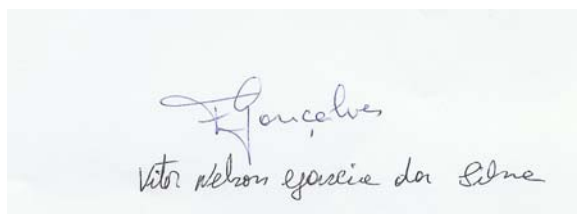 F Gonçalves
Vitor Nelson Garcia da Silva